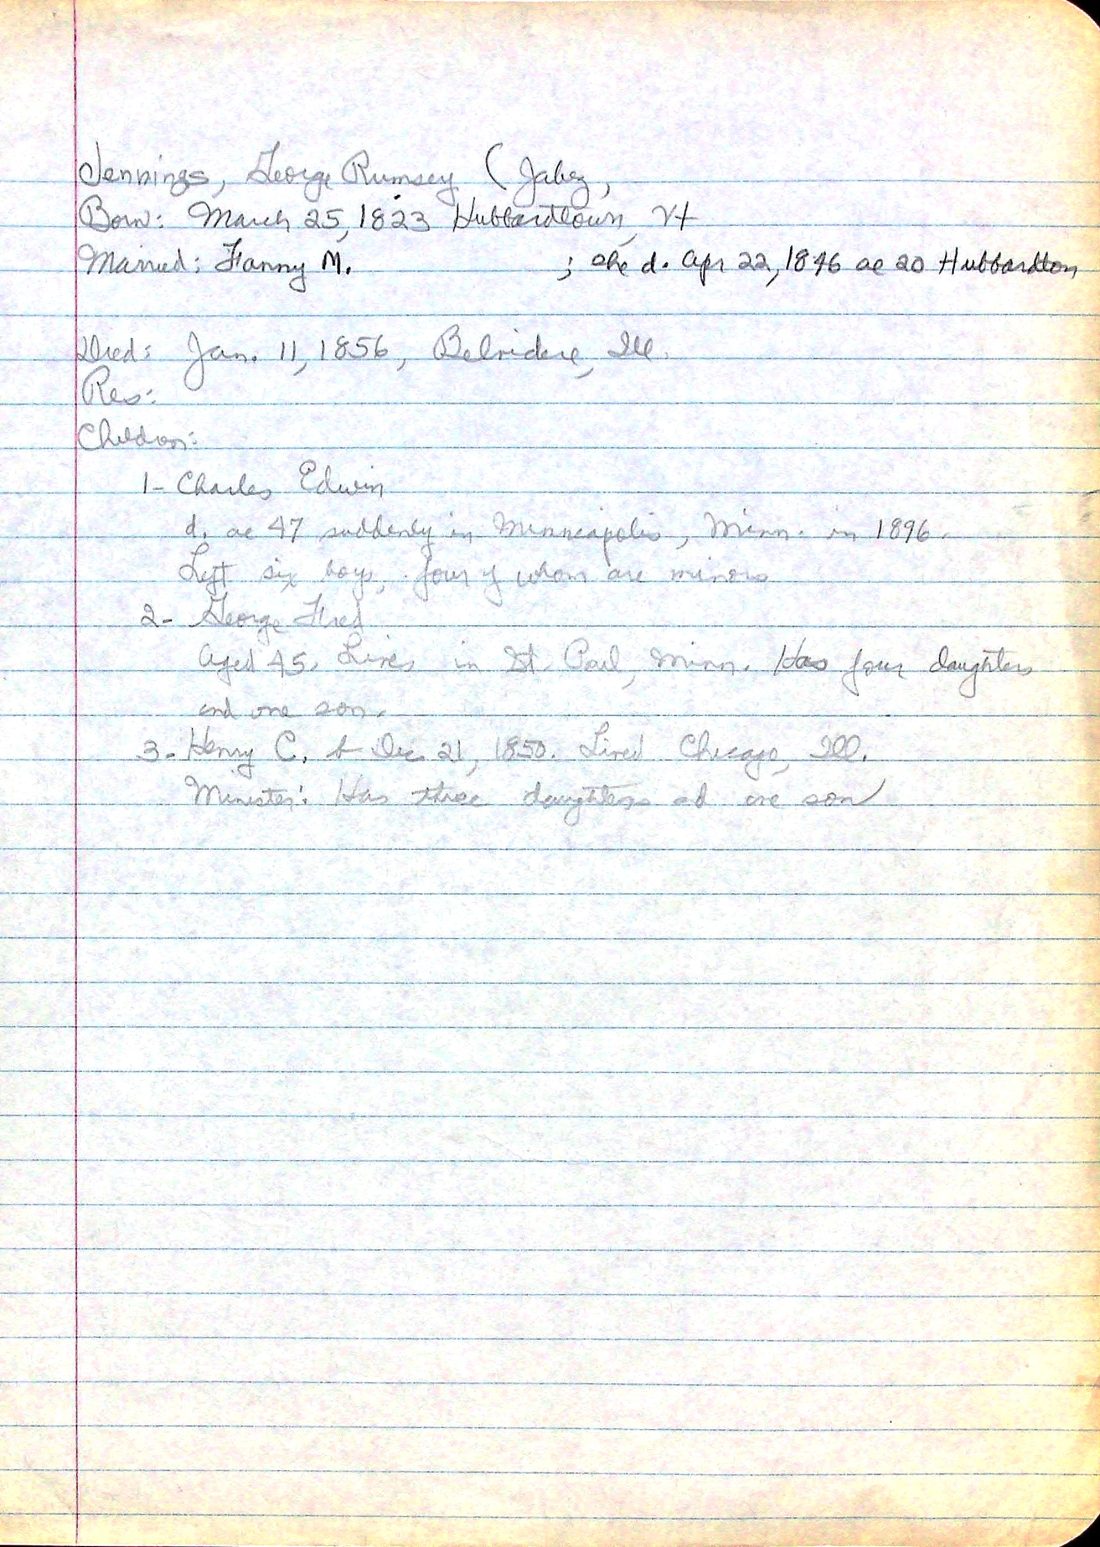 Jennings, George Rumsey (Jabez,
Born: March 25, 1823 Hubbardtown, Vt
Married: Fanny M. ; she d. Apr 22, 1846 ae 20 Hubbardton
Died: Jan. 11, 1856, Belvidere, Ill.
Res:
Children:
1- Charles Edwin
d. ae 47 suddenly in Minneapolis, Minn. in 1896.
Left six boys, four of whom are minors
2- George Fred
Aged 45. Lives in St. Paul, Minn. Has four daughters
and one son.
3- Henry C. b Dec. 21, 1850. Lived Chicago, Ill.
Minister: Has three daughters ad one son